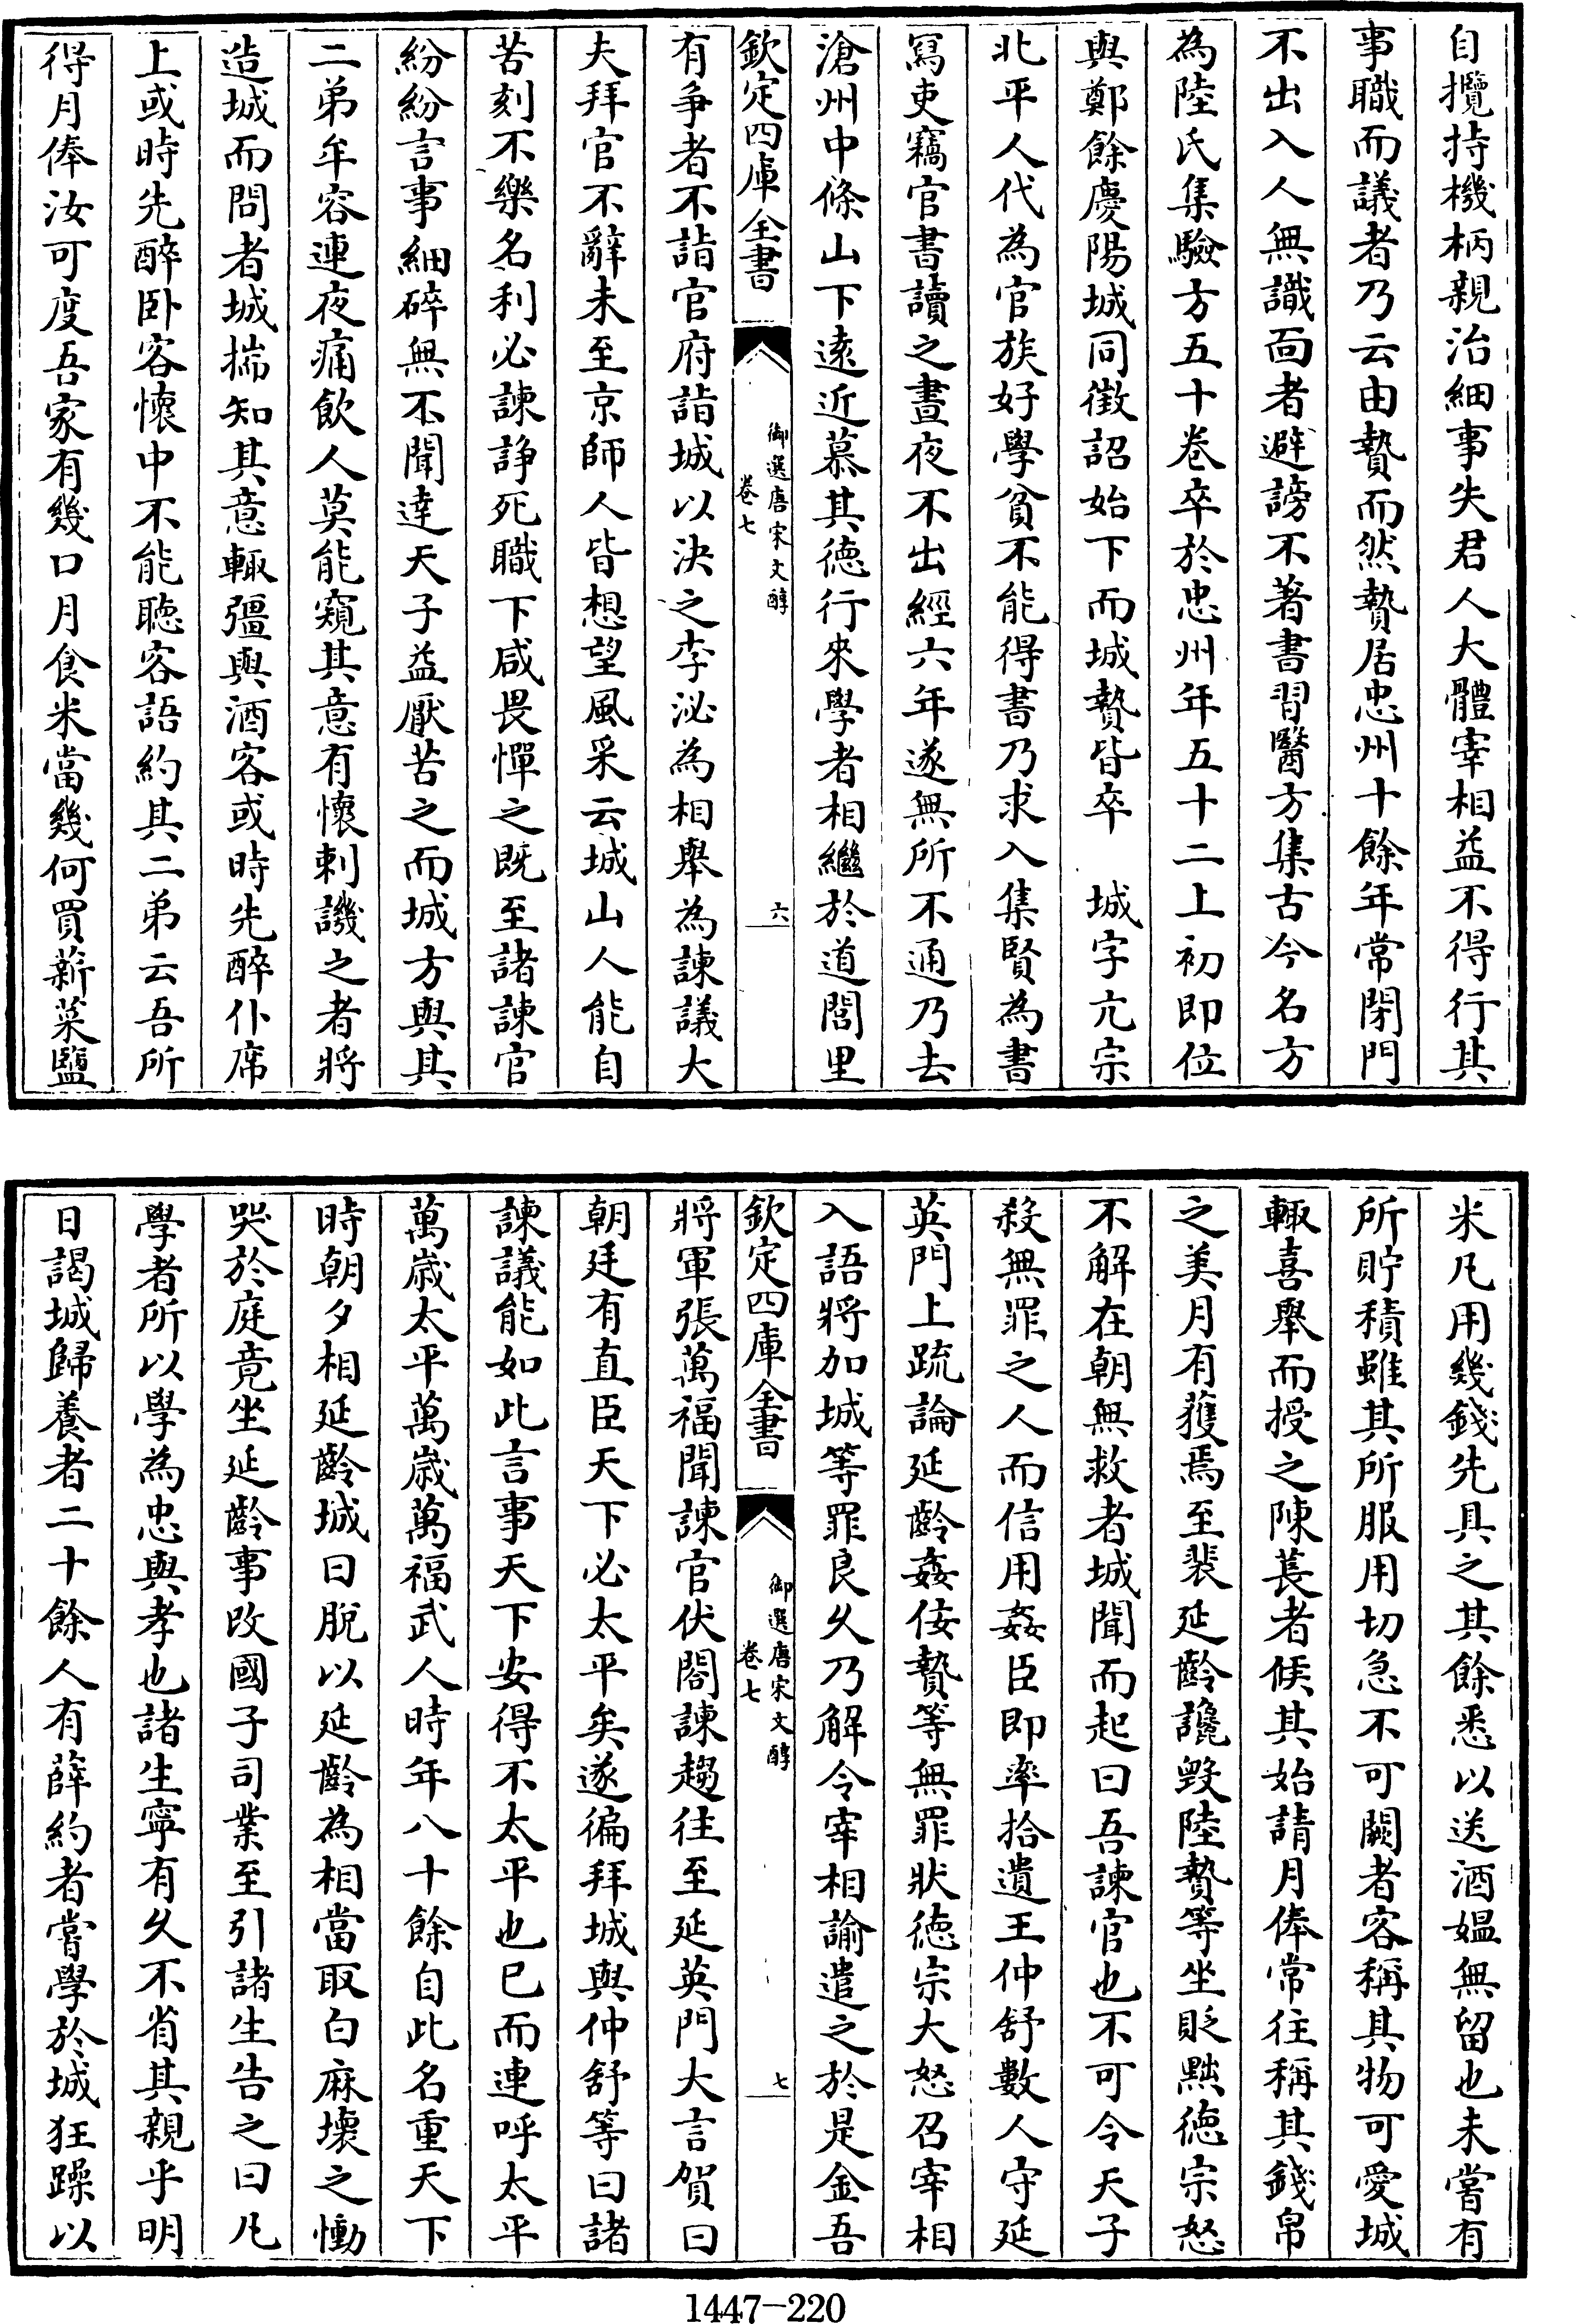 自攬持機柄親治細事失君人大體宰相益不得行其
事職而議者乃云由贄而然贄居忠州十餘年常閉門
不出入人無識面者避謗不著書習醫方集古今名方
為陸氏集驗方五十卷卒於忠州年五十二上初即位
與鄭餘慶陽城同徵詔始下而城贄皆卒　城字亢宗
北平人代為官族好學貧不能得書乃求入集賢為書
寫吏竊官書讀之晝夜不出經六年遂無所不通乃去
滄州中條山下逺近慕其徳行來學者相繼於道閭里
欽定四庫全書
御選唐宋文醇
卷七
六
有争者不詣官府詣城以決之李泌為相舉為諫議大
夫拜官不辭未至京師人皆想望風采云城山人能自
苦刻不樂名利必諫諍死職下咸畏憚之既至諸諫官
紛紛言事細碎無不聞達天子益厭苦之而城方與其
二弟牟容連夜痛飲人莫能窺其意有懷刺譏之者將
造城而問者城揣知其意輙彊與酒客或時先醉仆席
上或時先醉卧客懷中不能聴客語約其二弟云吾所
得月俸汝可度吾家有幾口月食米當幾何買薪菜鹽
米凡用幾錢先具之其餘悉以送酒媪無留也未嘗有
所貯積雖其所服用切急不可闕者客稱其物可愛城
輙喜舉而授之陳萇者候其始請月俸常往稱其錢帛
之美月有獲焉至裴延齡讒毀陸贄等坐貶黜徳宗怒
不解在朝無救者城聞而起曰吾諫官也不可令天子
殺無罪之人而信用姦臣即率拾遺王仲舒數人守延
英門上疏論延齡姦佞贄等無罪狀徳宗大怒召宰相
入語將加城等罪良乆乃解令宰相諭遣之於是金吾
欽定四庫全書
御選唐宋文醇
卷七
七
將軍張萬福聞諫官伏閤諫趨往至延英門大言賀曰
朝廷有直臣天下必太平矣遂徧拜城與仲舒等曰諸
諫議能如此言事天下安得不太平也已而連呼太平
萬歲太平萬歲萬福武人時年八十餘自此名重天下
時朝夕相延齡城曰脫以延齡為相當取白麻壞之慟
哭於庭竟坐延齡事改國子司業至引諸生告之曰凡
學者所以學為忠與孝也諸生寧有乆不省其親乎明
日謁城歸養者二十餘人有薛約者嘗學於城狂躁以
1447-220